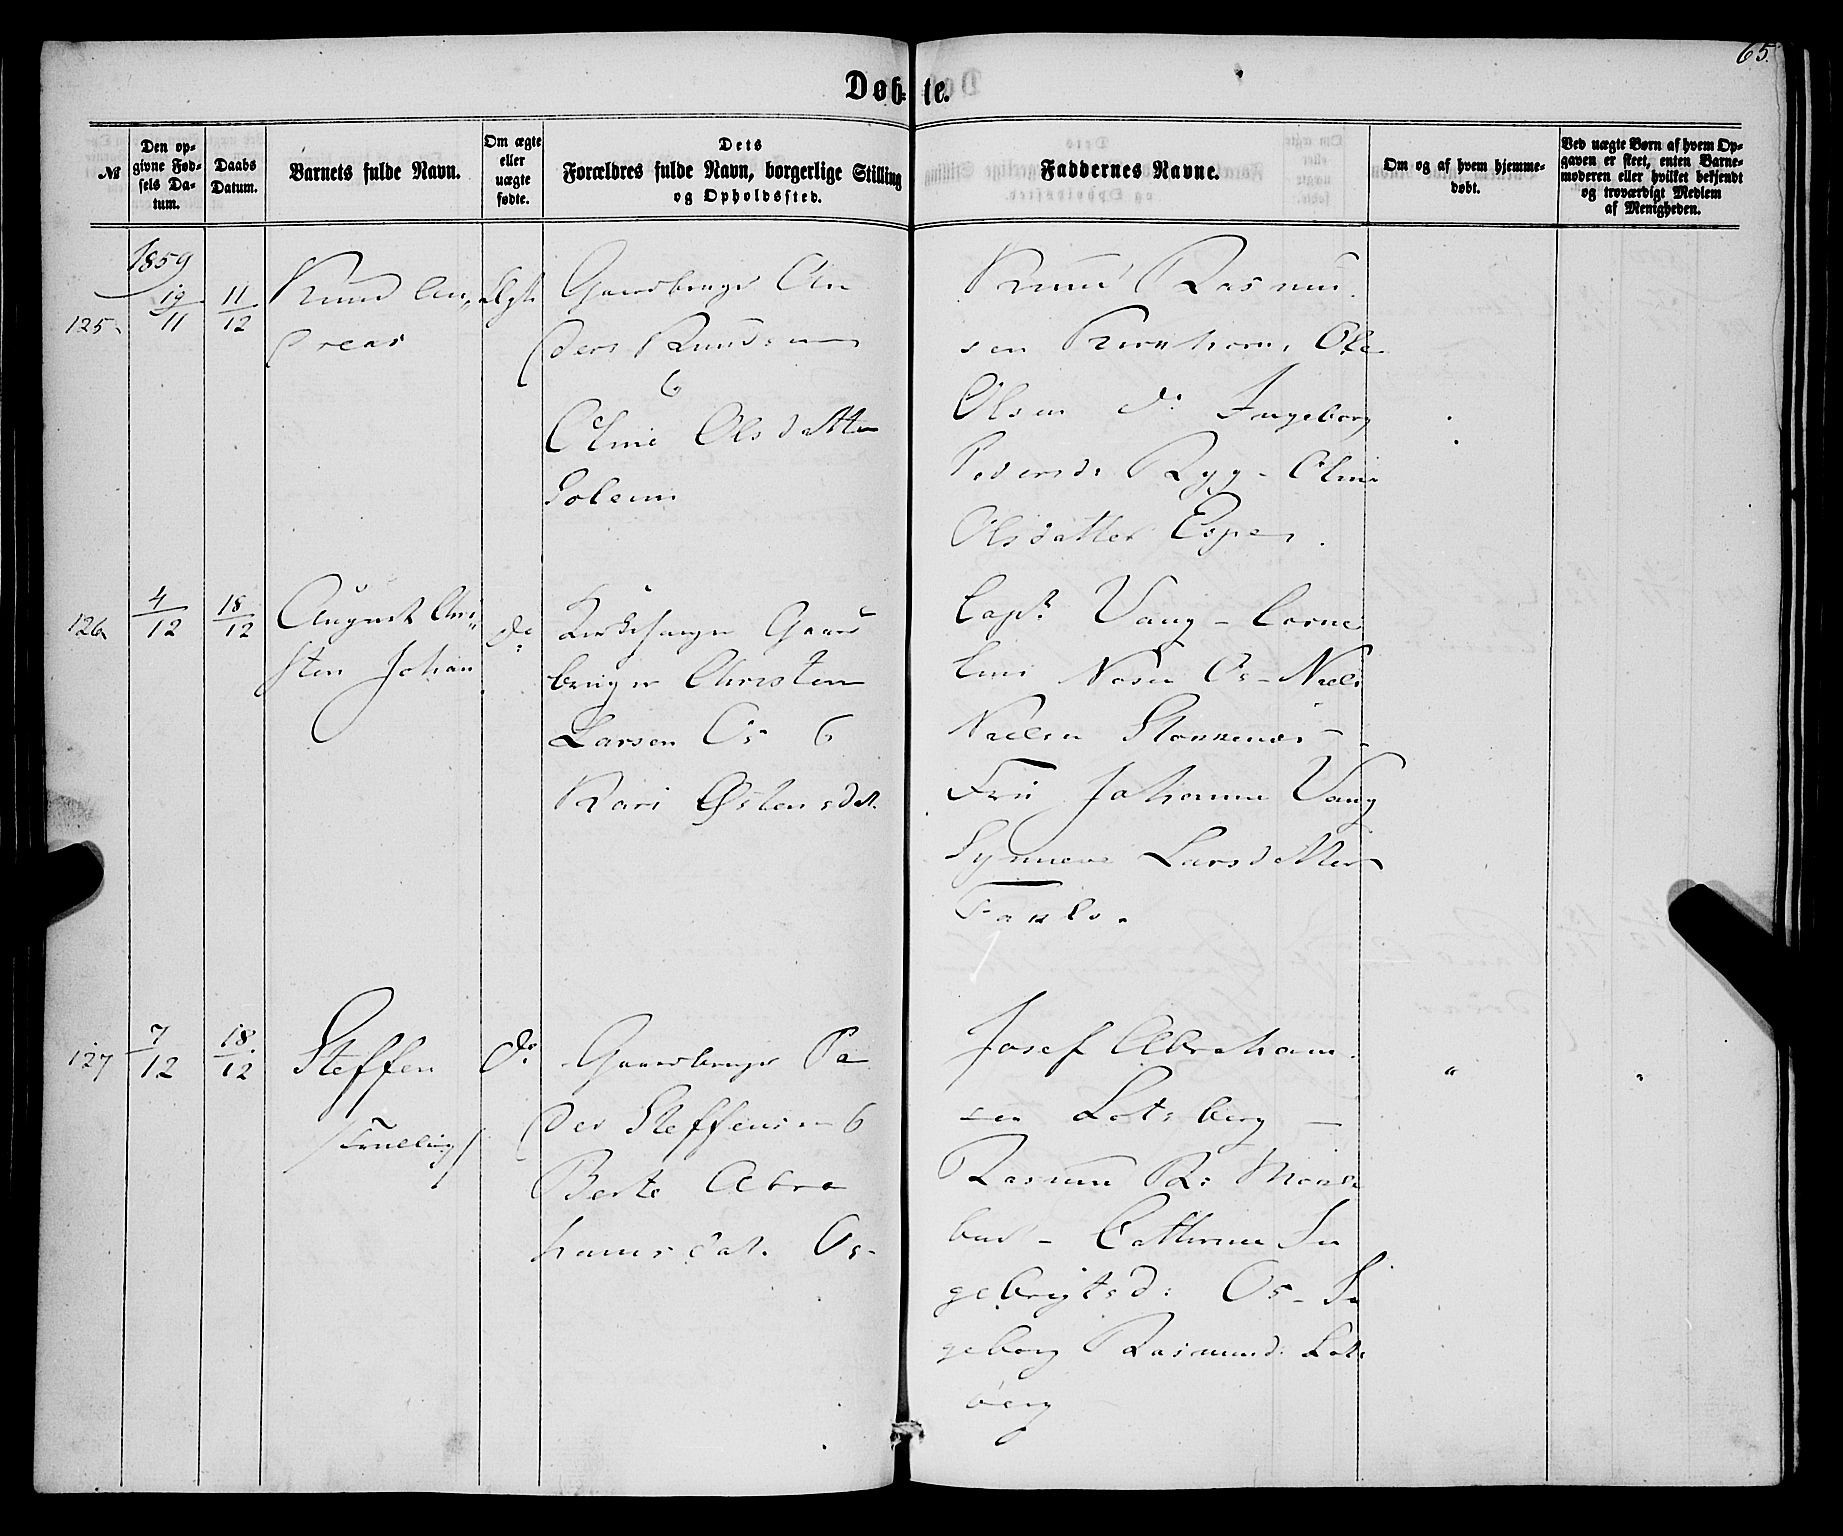 65.
Døbte.
№
Den opgivne Fødsels Datum.
Daabs Datum.
Barnets fulde Navn.
Om ægte eller uægte fødte.
Dets Forældres fulde Navn, borgerlige Stilling og Opholdssted.
Faddernes Navne.
Om og af hvem hjemmedøbt.
Ved uægte Børn af hvem Opgaven er skeet, enten Barnemoderen eller hvilket bekjendt og troværdigt Medlem af Menigheden.
1859
125
19/11
11/12
Knud An„
dreas
Ægt
Gaardbruger An
ders Knudsen
&
Oline Olsdatter
Solem
Knud Rasmus
sen Ole
Olsen do Ingeborg
Pedersd: Rygg - Oline
Olsdatter Espe
126
4/12
18/12
August Chri„
sten Johan
do
Kirkesanger Gaard
bruger Christen
Larsen Os &
Kari Østensdat.
Capt Vang - Corne
lius Os - Niels
Nielsen
Fru Johanne Vang
Synneve Larsdatter
127
7/12
18/12
Steffen
/Trilling/
do
Gaardbruger Pe
der Steffensen &
Berte Abra
hamsdat. Os -
Josef Abraham
sen Lotsberg —
Rasmus Rs
- Cathrine In
gebrigtsd: Os - In
geborg Rasmusd: Lots
berg